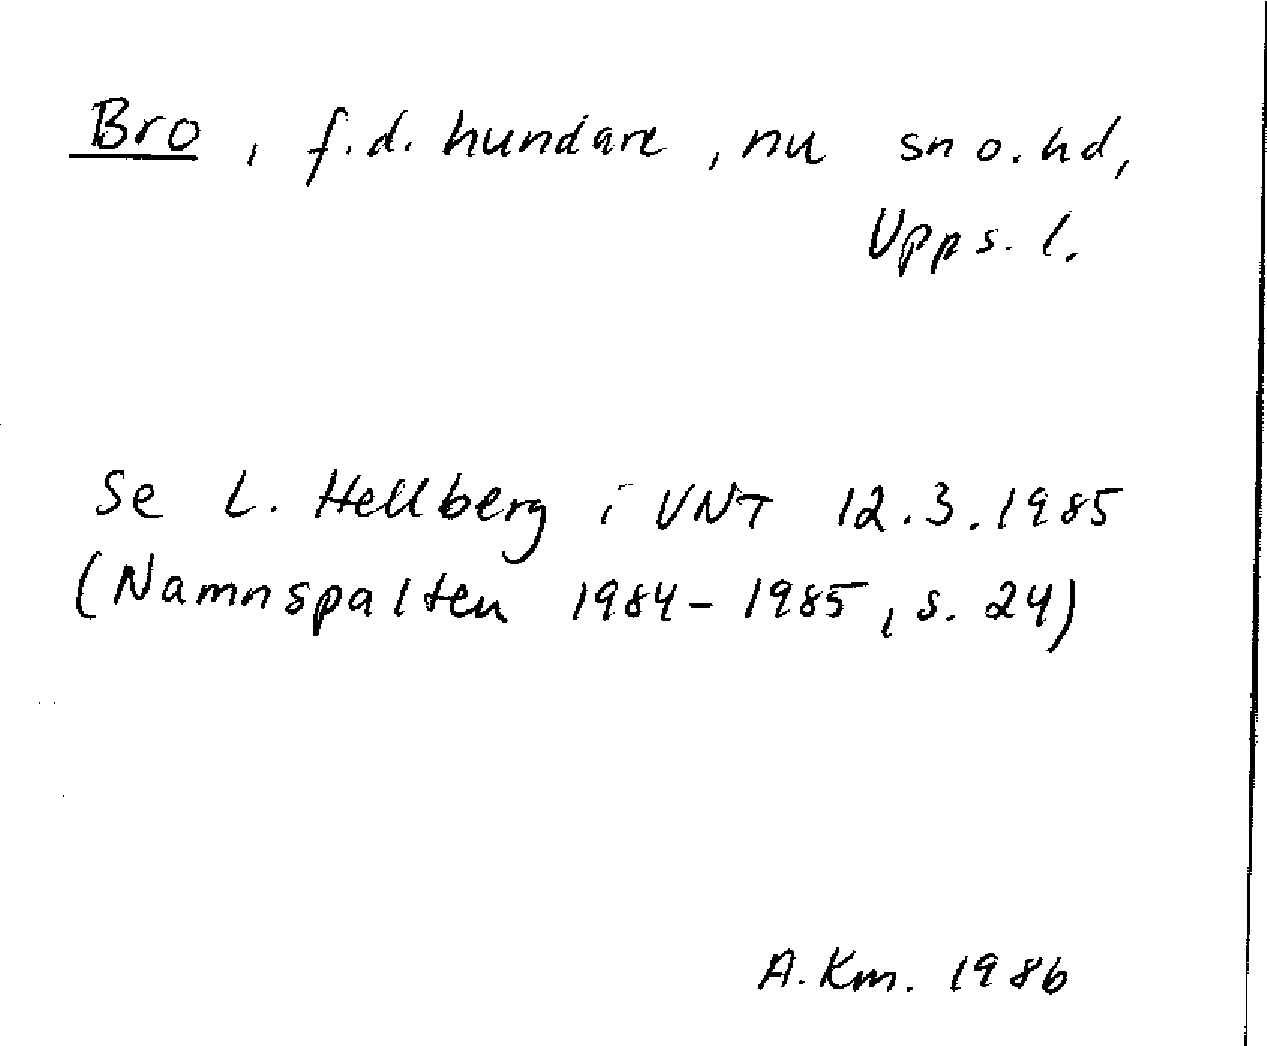 Bro, f.d. hundare, nu sn o. hd,
Upps. l.
Se L. Hellberg i VNT 12.3.1985
(Namnspalten 1984-1985, s. 24)
A. Km. 1986